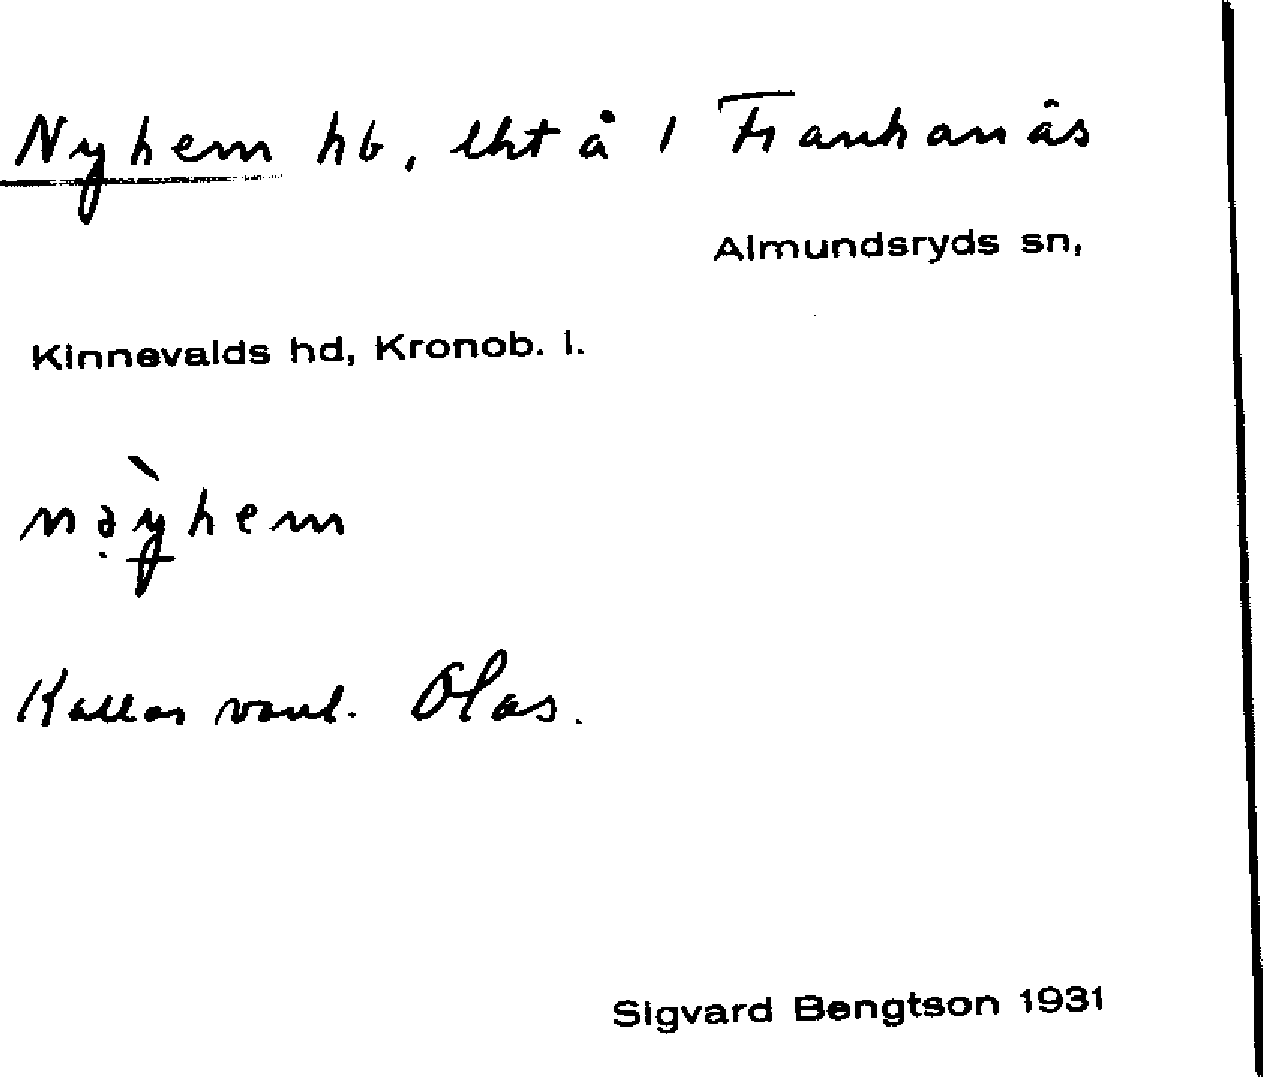 Nyhem hb, lht å 1 Frankanäs
Almundsryds sn,
Kinnevalds hd, Kronob. l.
nə̣ỳhem
Kallas vanl. Olas.
Sigvard Bengtson 1931